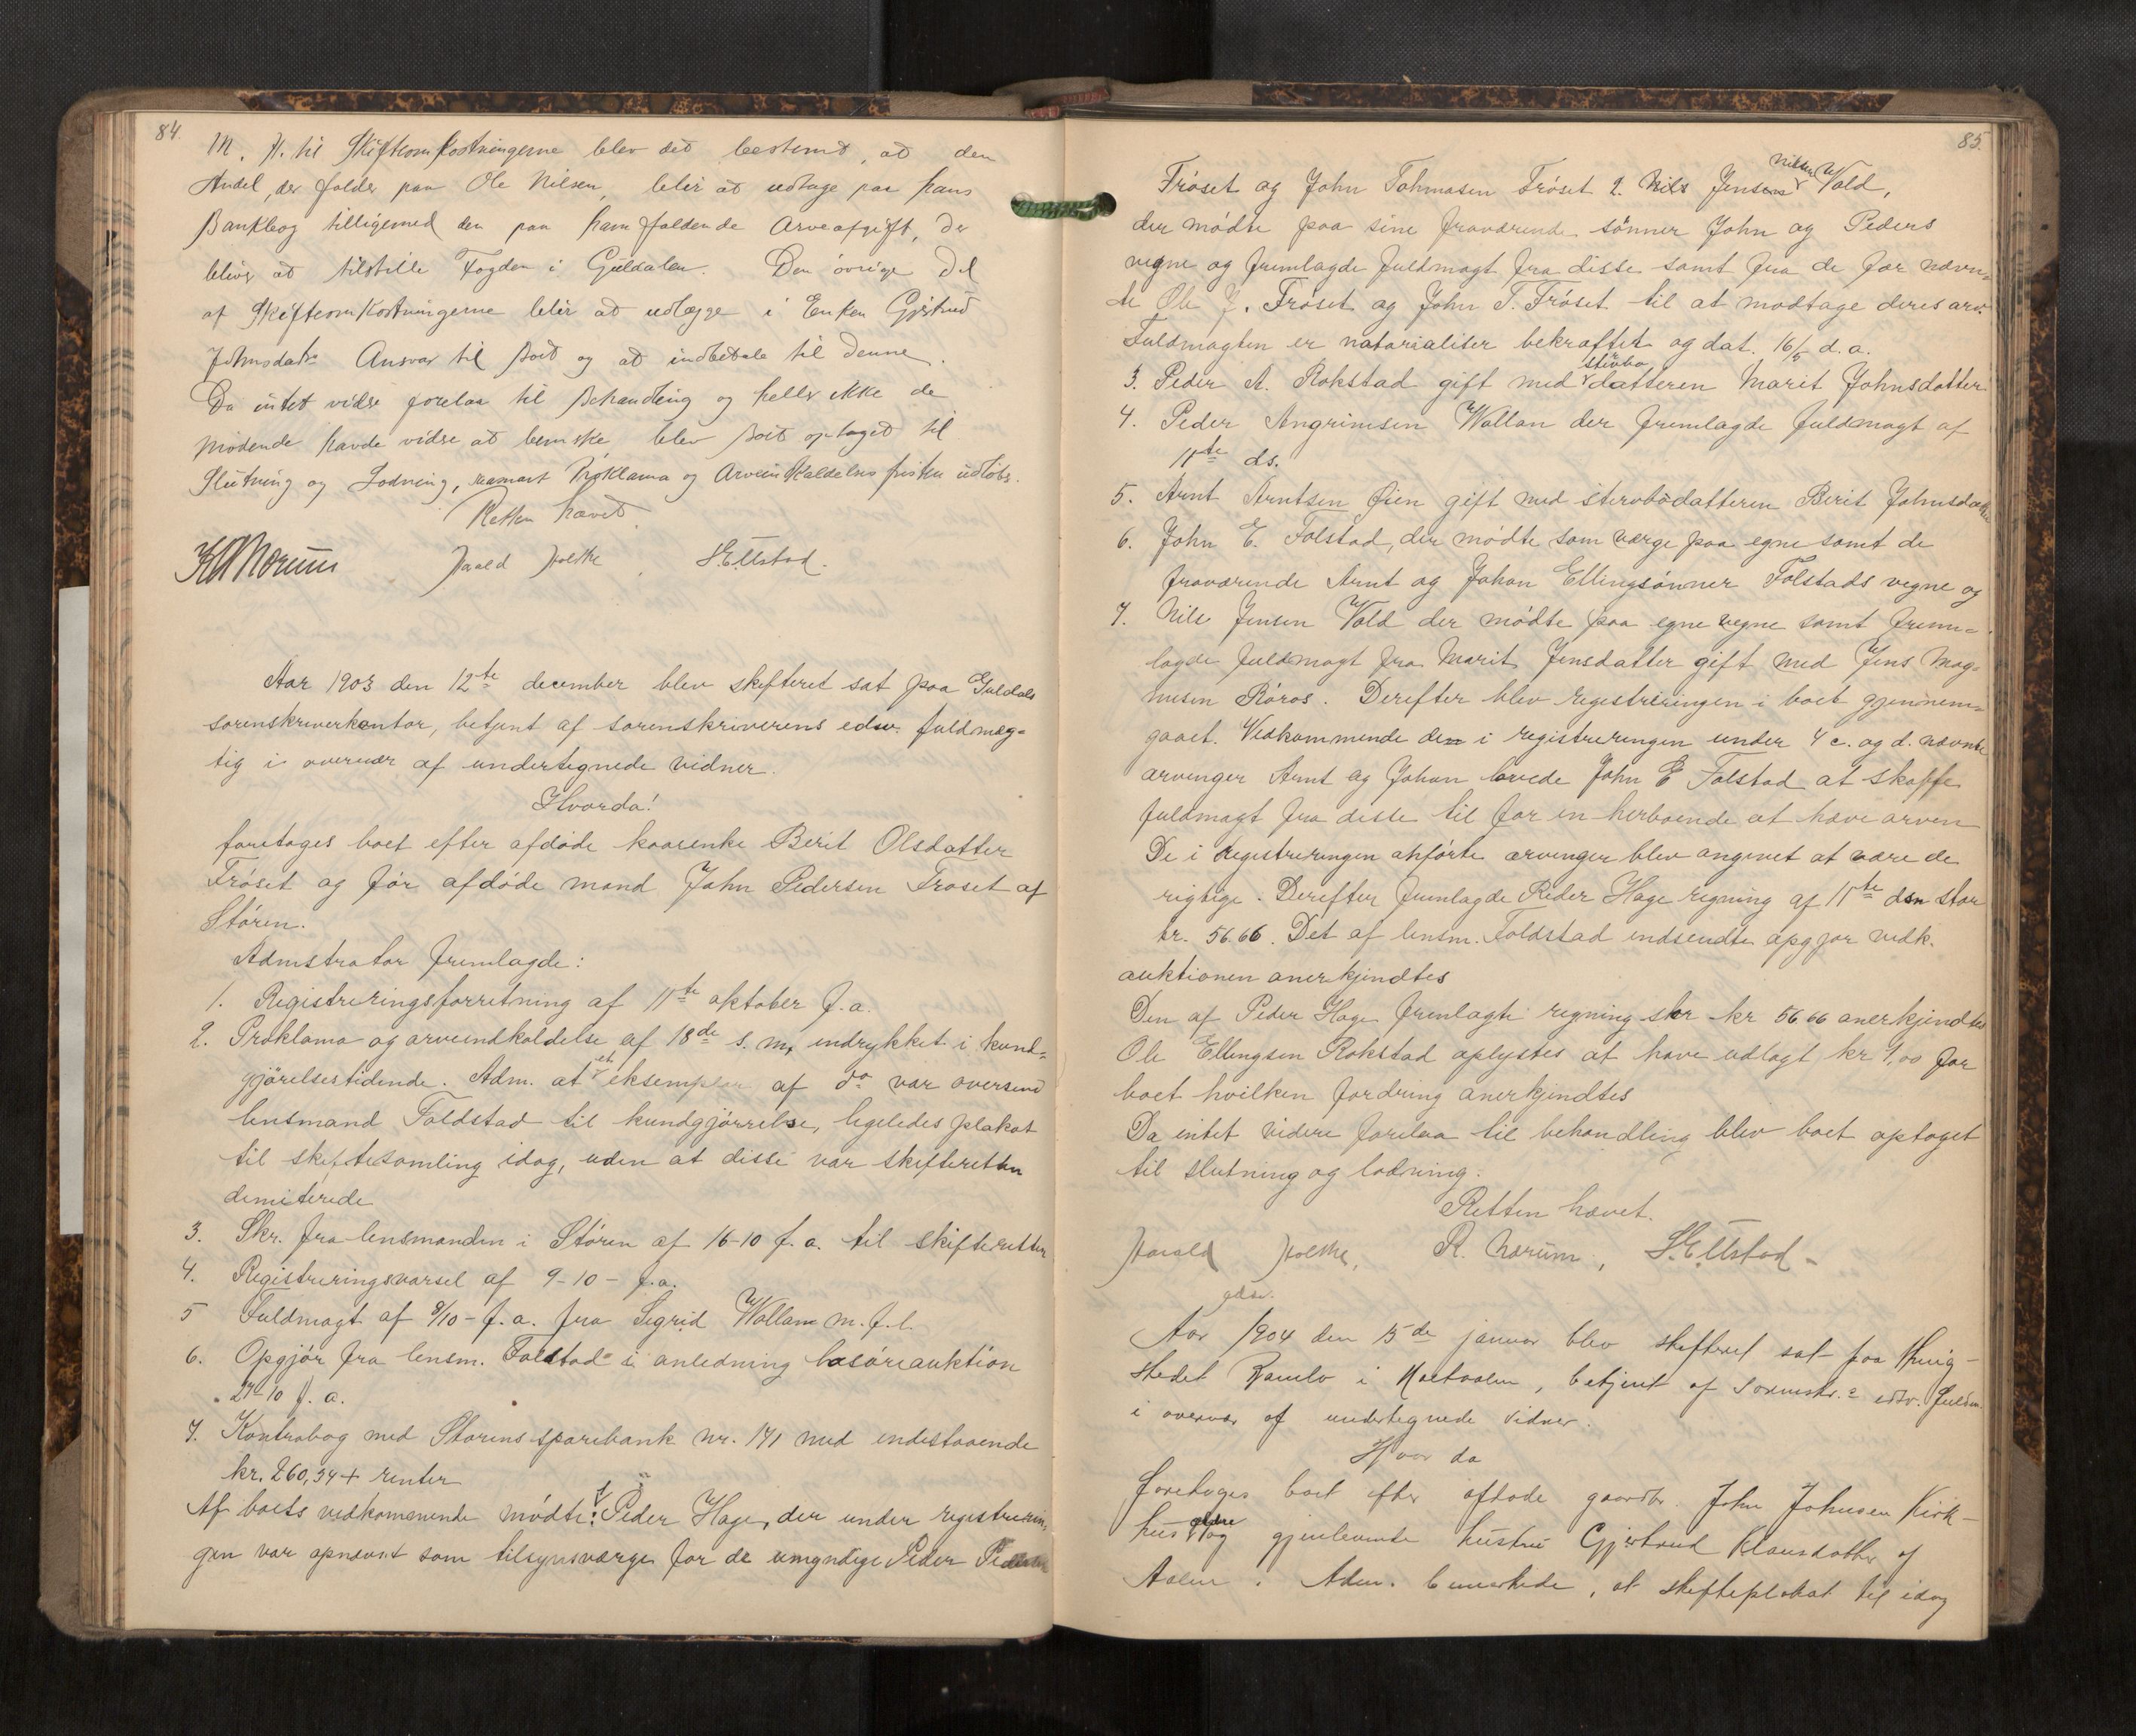 84.
M. H. til Skifteomkostningerne blev det bestemt, at den
Andel, der falder paa Ole Nilsen, blir at udtage paa hans
Bankbog tilligemed den paa ham faldende Arveafgift, der
bliver at tilstille Fogden i Guldalen. Den övrige Del
af Skifteomkostningerne blir at udlægge i Enken Gjertrud
Johnsdatrs Ansvar til Boet og at indbetale til denne.
Da intet videre forelaa til Behandling og heller ikke de
mödende havde videre at bemerke, blev Boet optaget til
Slutning og Lodning, snarest Proklama og Arveindkaldelsesfristen udlöber.
Retten hævet.
Harald Holthe, S. Ellstad.
Aar 1903 den 12te december blev skifteret sat paa Guldals
sorenskriverkontor, betjent af sorenskriverens edsv. fuldmæg-
tig i overvær af undertegnede vidner.
Hvorda!
foretoges boet efter afdöde kaarenke Berit Olsdatter
Fröset og för afdöde mand John Pedersen Fröset af
Stören.
Admstrator fremlagde:
1. Registreringsforretning af 11te oktober f.a.
2. Proklama og arveindkaldelse af 18de s. m. indrykket i kund-
gjörelsestidende. Adm. at et eksemplar af do var oversend
lensmand Foldstad til kundgjörrelse, ligeledes plakat
til skiftesamling idag, uden at disse var skifteretten
demiterede
3. Skr. fra lensmanden i Stören af 16-10 f.a. til skifteretten
4. Registreringsvarsel af 9-10- f.a.
5 Fuldmagt af 9/10- f.a. fra Sigrid Wollan m.fl.
6. Opgjör fra lensm. Folstad i anledning lösöreauktion
27-10 f.a.
7. Kontrabog med Störens sparebank nr. 171 med indestaaende
kr. 260,34 + renter
Af boets vedkommende mödte: 1. Peder Hage, der under registrerin-
gen var opnævnt som tilsynsværge for de umyndige Peder Pedersen
85.
Fröset og John Tohmasen Fröset 2. Nils Jensen Nilsen Vold,
der mödte paa sine fraværende sönner John og Peders
vegne og fremlagde fuldmagt fra disse samt fra de før nævn-
te Ole J. Fröset og John T. Fröset til at modtage deres arv.
Fuldmagten er natorialiter bekræftet og dat. 16/5 d.a.
3. Peder A. Rokstad gift med stervbo datteren Marit Johnsdatter
4. Peder Angrimsen Wollan der fremlagde fuldmagt af
11te ds.
5. Arnt Arntsen Öien gift med stervbodatteren Berit Johnsdatter
6. John E. Folstad, der mödte som værge paa egne samt de
fraværende Arnt og Johan Ellingsönner Folstads vegne og
7. Nils Jensen Vold der mödte paa egne vegne samt frem-
lagde fuldmagt fra Marit Jensdatter gift med Jens Mog-
nusen Röros. Derefter blev registreringen i boet gjennem-
gaaet. Vedkommende den i registreringen under 4 c. og d. nævnte
arvinger Arnt og Johan lovede John E Folstad at skaffe
fuldmagt fra disse til for en herboende at hæve arven
De i registreringen anförte arvinger blev angivet at være de
rigtige. Derefter fremlagde Peder Hage regning af 11te dsn stor
kr. 56.66. Det af lensm. Foldstad indsendte opgjør vedk.
auktionen anerkjendtes
Den af Peder Hage fremlagte regning stor kr 56.66 anerkjendtes
Ole Ellingsen Rokstad oplystes at have udlagt kr 4,00 for
boet hvilken fordring anerkjendtes
Da intet videre forelaa til behandling blev boet optaget
til slutning og lodning.
Retten hævet.
Harald Holthe, R. Norum, S. Ellstad.
edsv.
Aar 1904 den 15de januar blev skifteret sat paa thing-
stedet Ramlo i Holtaalen, betjent af Sorenskr.s edsv. fuldm.
i overvær af undertegnede vidner.
Hvor da
foretoges boet efter afdöde gaardbr. John Johnsen Kirk-
hus ældre og gjenlevende hustru Gjertrud Klausdatter af
Aalen. Adm. bemærkede, at skifteplakat til idag